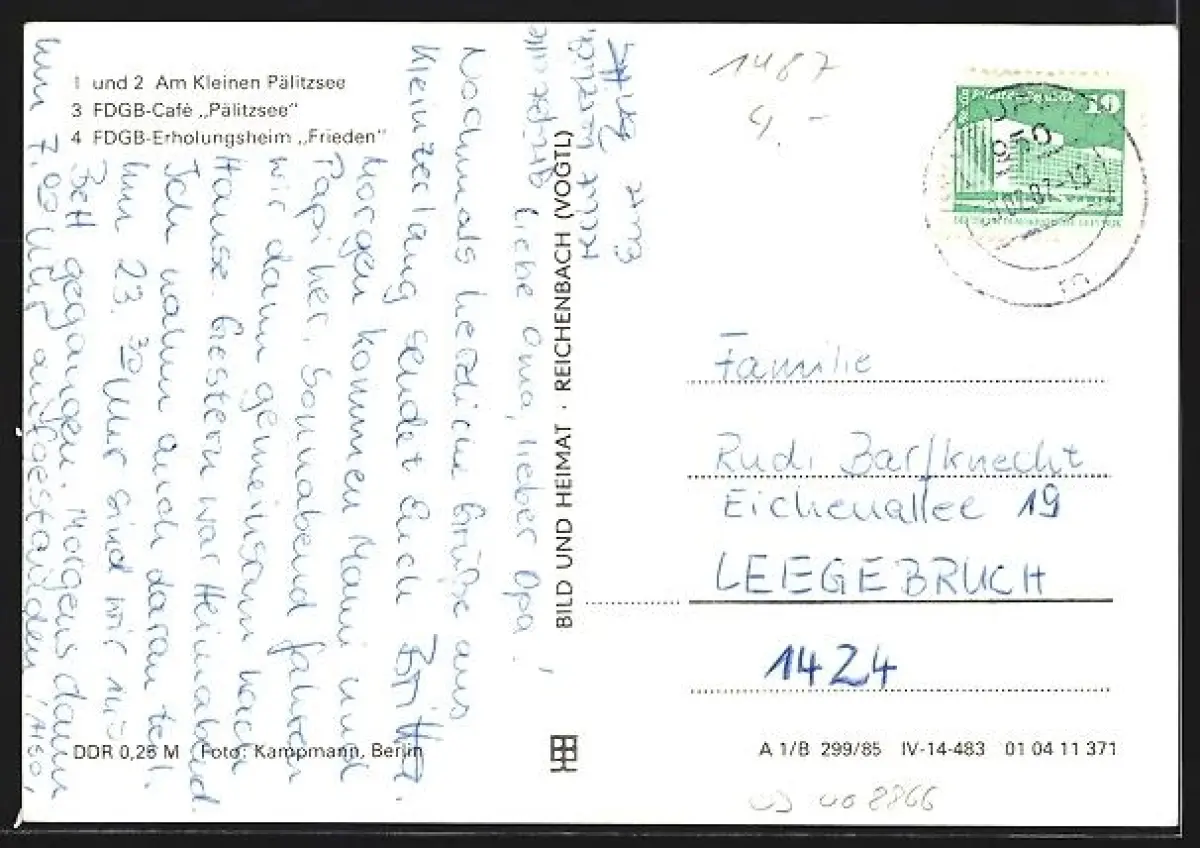 1 und 2 Am Kleinen Pälitzsee
3 FDGB-Café „Pälitzsee“
4 FDGB-Erholungsheim „Frieden“
Liebe Oma, lieber Opa!
Nochmals herzliche Grüße aus
Kleinzerlang sendet Euch Britt.
Morgen kommen Mami und
Papi her. Sonnabend fahren
wir dann gemeinsam nach
Hause. Gestern war Heimabend.
Ich nahm auch daran teil.
Um 23.30 Uhr sind wir ins
Bett gegangen. Morgens dann
um 7.00 Uhr aufgestanden! Also,
recht
Eure Britt
BILD UND HEIMAT · REICHENBACH (VOGTL)
DDR 0,25 M Foto: Kampmann, Berlin
1487
4.-
10
Familie
Rudi Barfknecht
Eichenallee 19
LEEGEBRUCH
1424
A 1/B 299/85 IV-14-483 01 04 11 371
8866